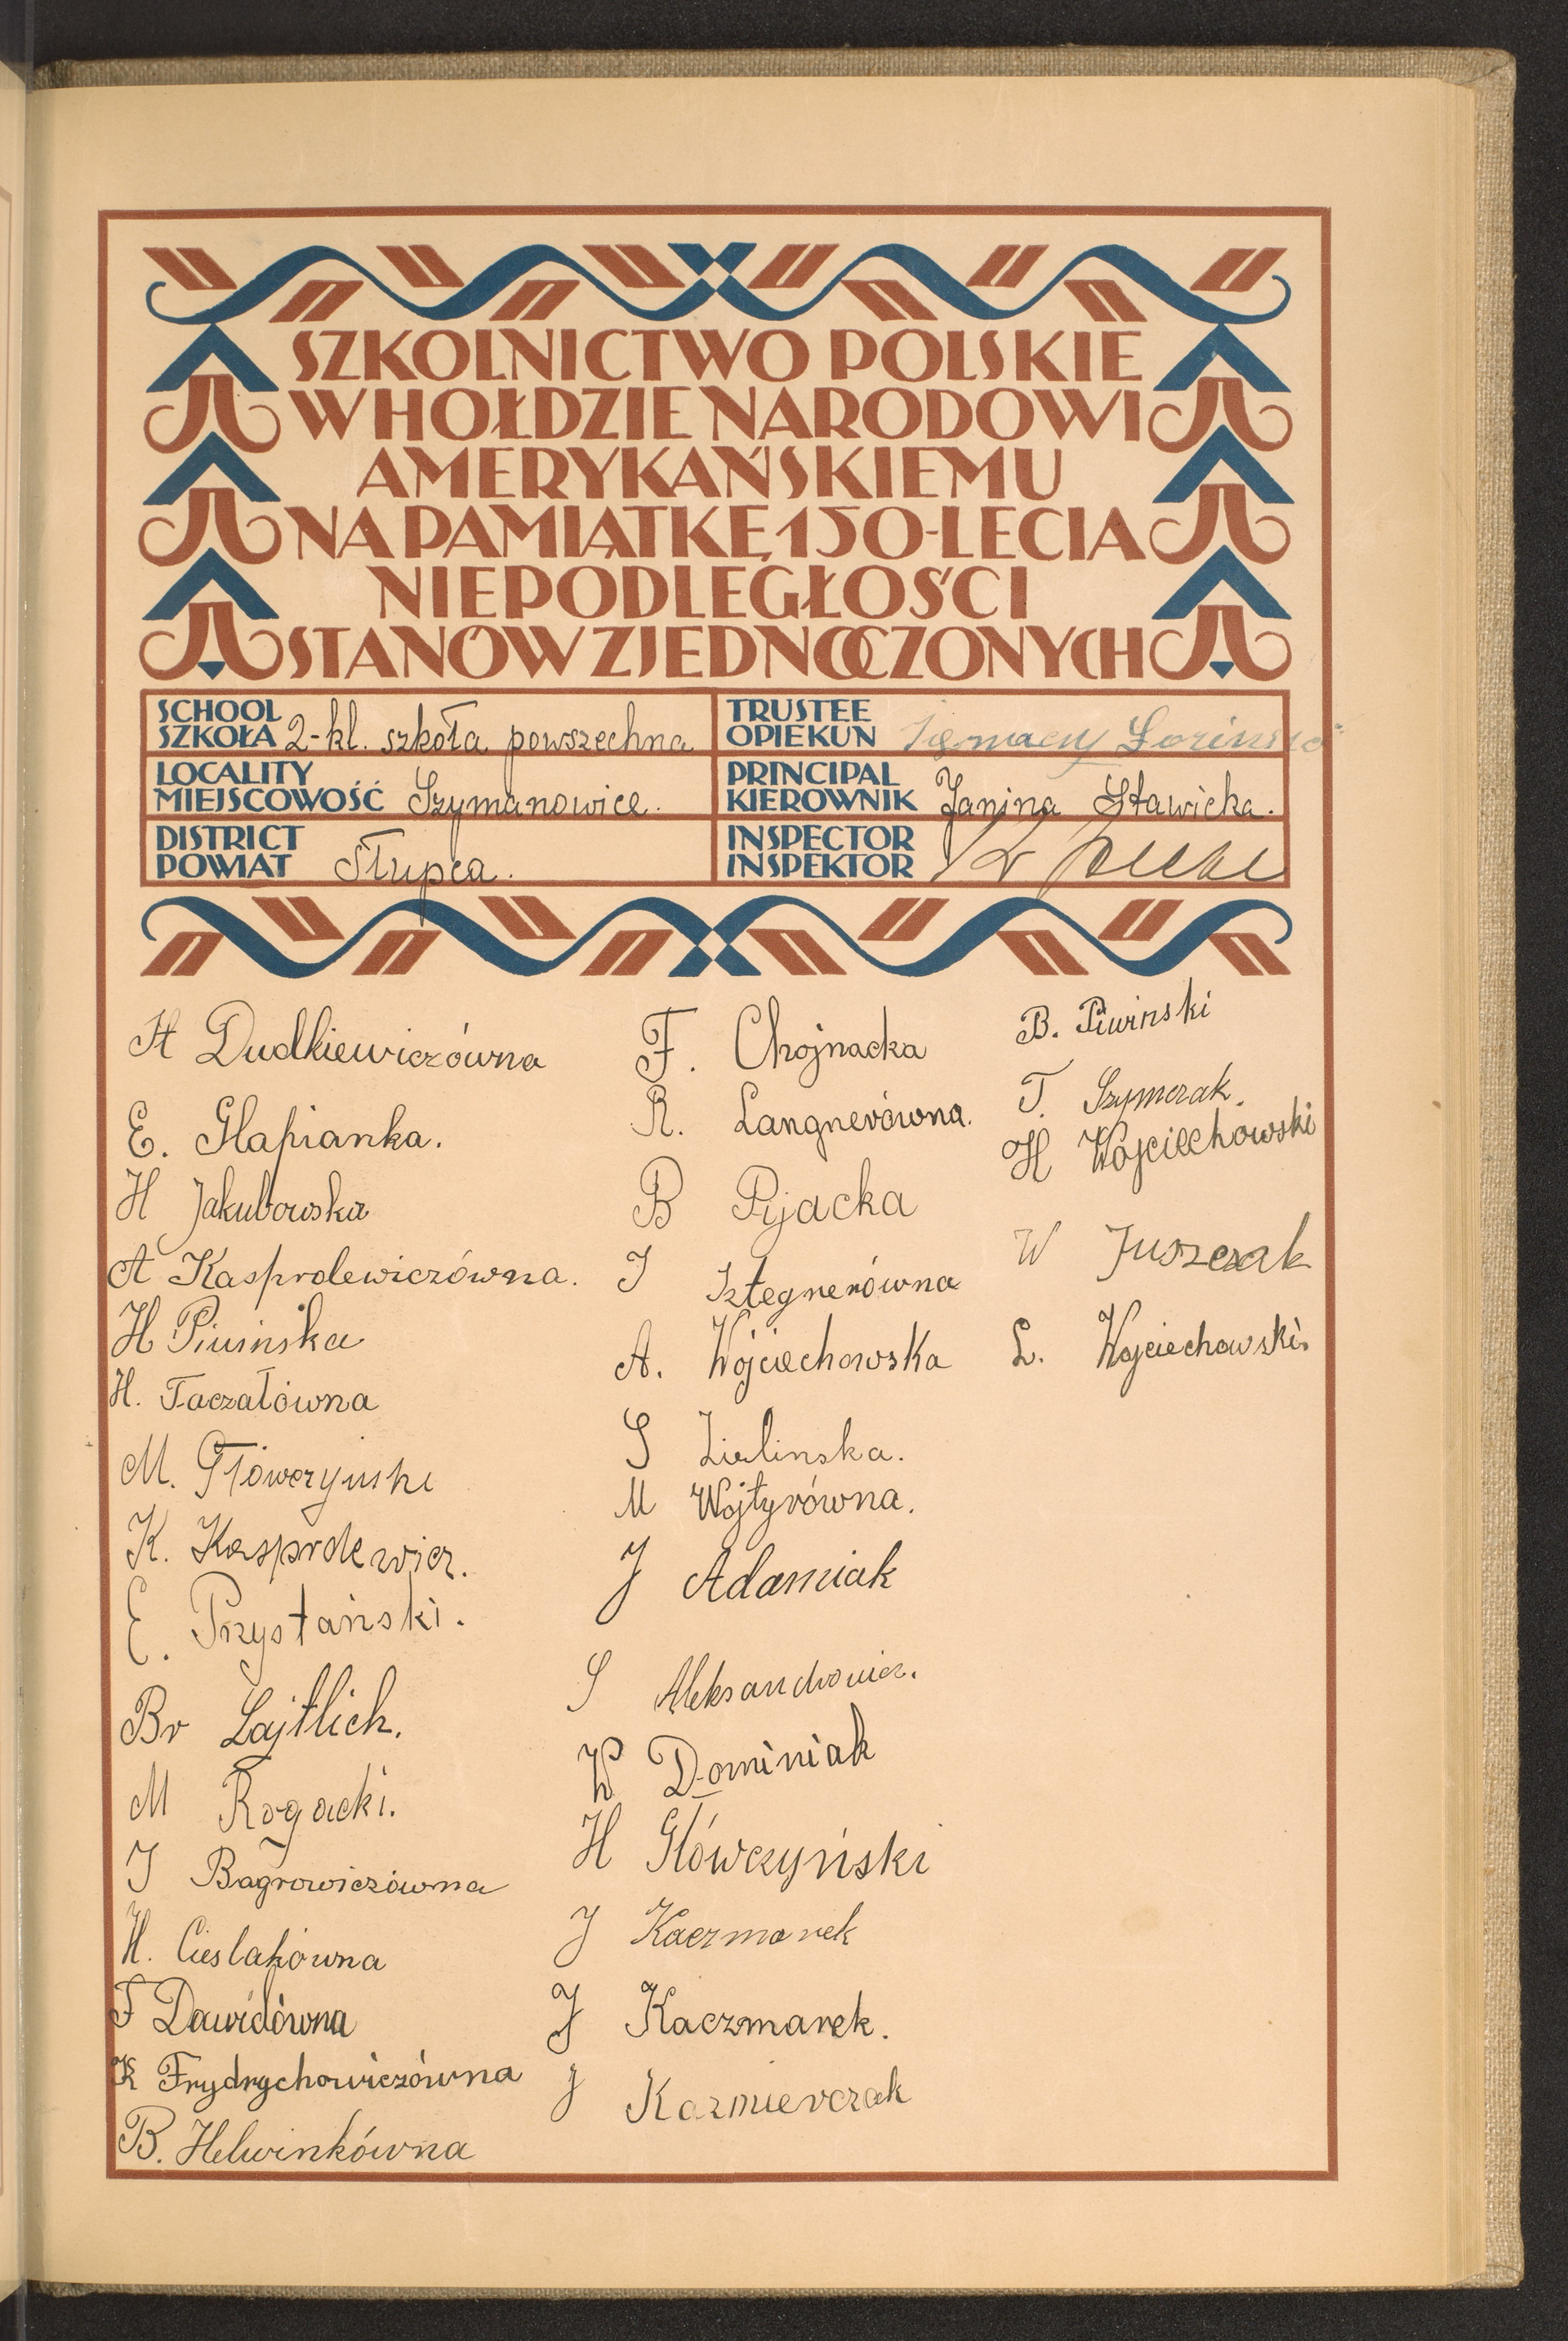 SZKOLNICTWO POLSKIE
W HOŁDZIE NARODOWI
AMERYKAŃSKIEMU
NA PAMIĄTKĘ 150-LECIA
NIEPODLEGŁOŚCI
STANÓW ZJEDNOCZONYCH
SCHOOL
SZKOŁA 2-kl. szkoła powszechna
TRUSTEE
OPIEKUN
LOCALITY
MIEJSCOWOŚĆ Szymanowice.
PRINCIPAL
KIEROWNIK Janina Sławicka.
DISTRICT
POWIAT Słupca.
INSPECTOR
INSPEKTOR
H Dudkiewiczówna
E. Glapianka.
H Jakubowska
A Kasprolewiczówna.
H Piwinska
H. Taczałówna
M. Głowczyński
K. Kasprolewicz.
E. Przystański.
Br Lajtlich.
M Rogacki.
J Bagrowiczówna
H. Cieslakówna
F Dawidówna
K Frydrychowiczówna
B. Helwinkówna
F. Chojnacka
R. Langnerówna.
B Pijacka
J Sztegnerówna
A. Wojciechowska
S Zielinska.
M Wojtyrówna.
J Adamiak
S Aleksandrowicz.
W Dominiak
H Główczyński
J Kaczmarek
J Kaczmarek.
J Kazmierczak
B. Piwinski
T. Szymczak.
H Wojciechowski
W Juszczak
L. Wojciechowski.